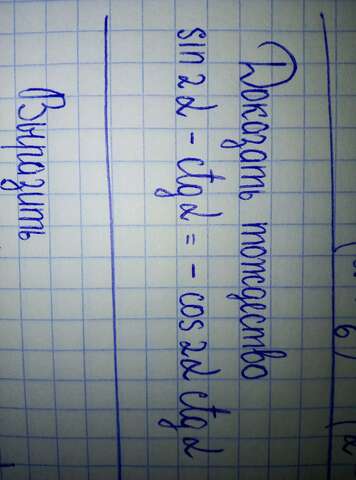 Доказать тождество
sin2α - ctgα = - cos2α ctgα
Выразить